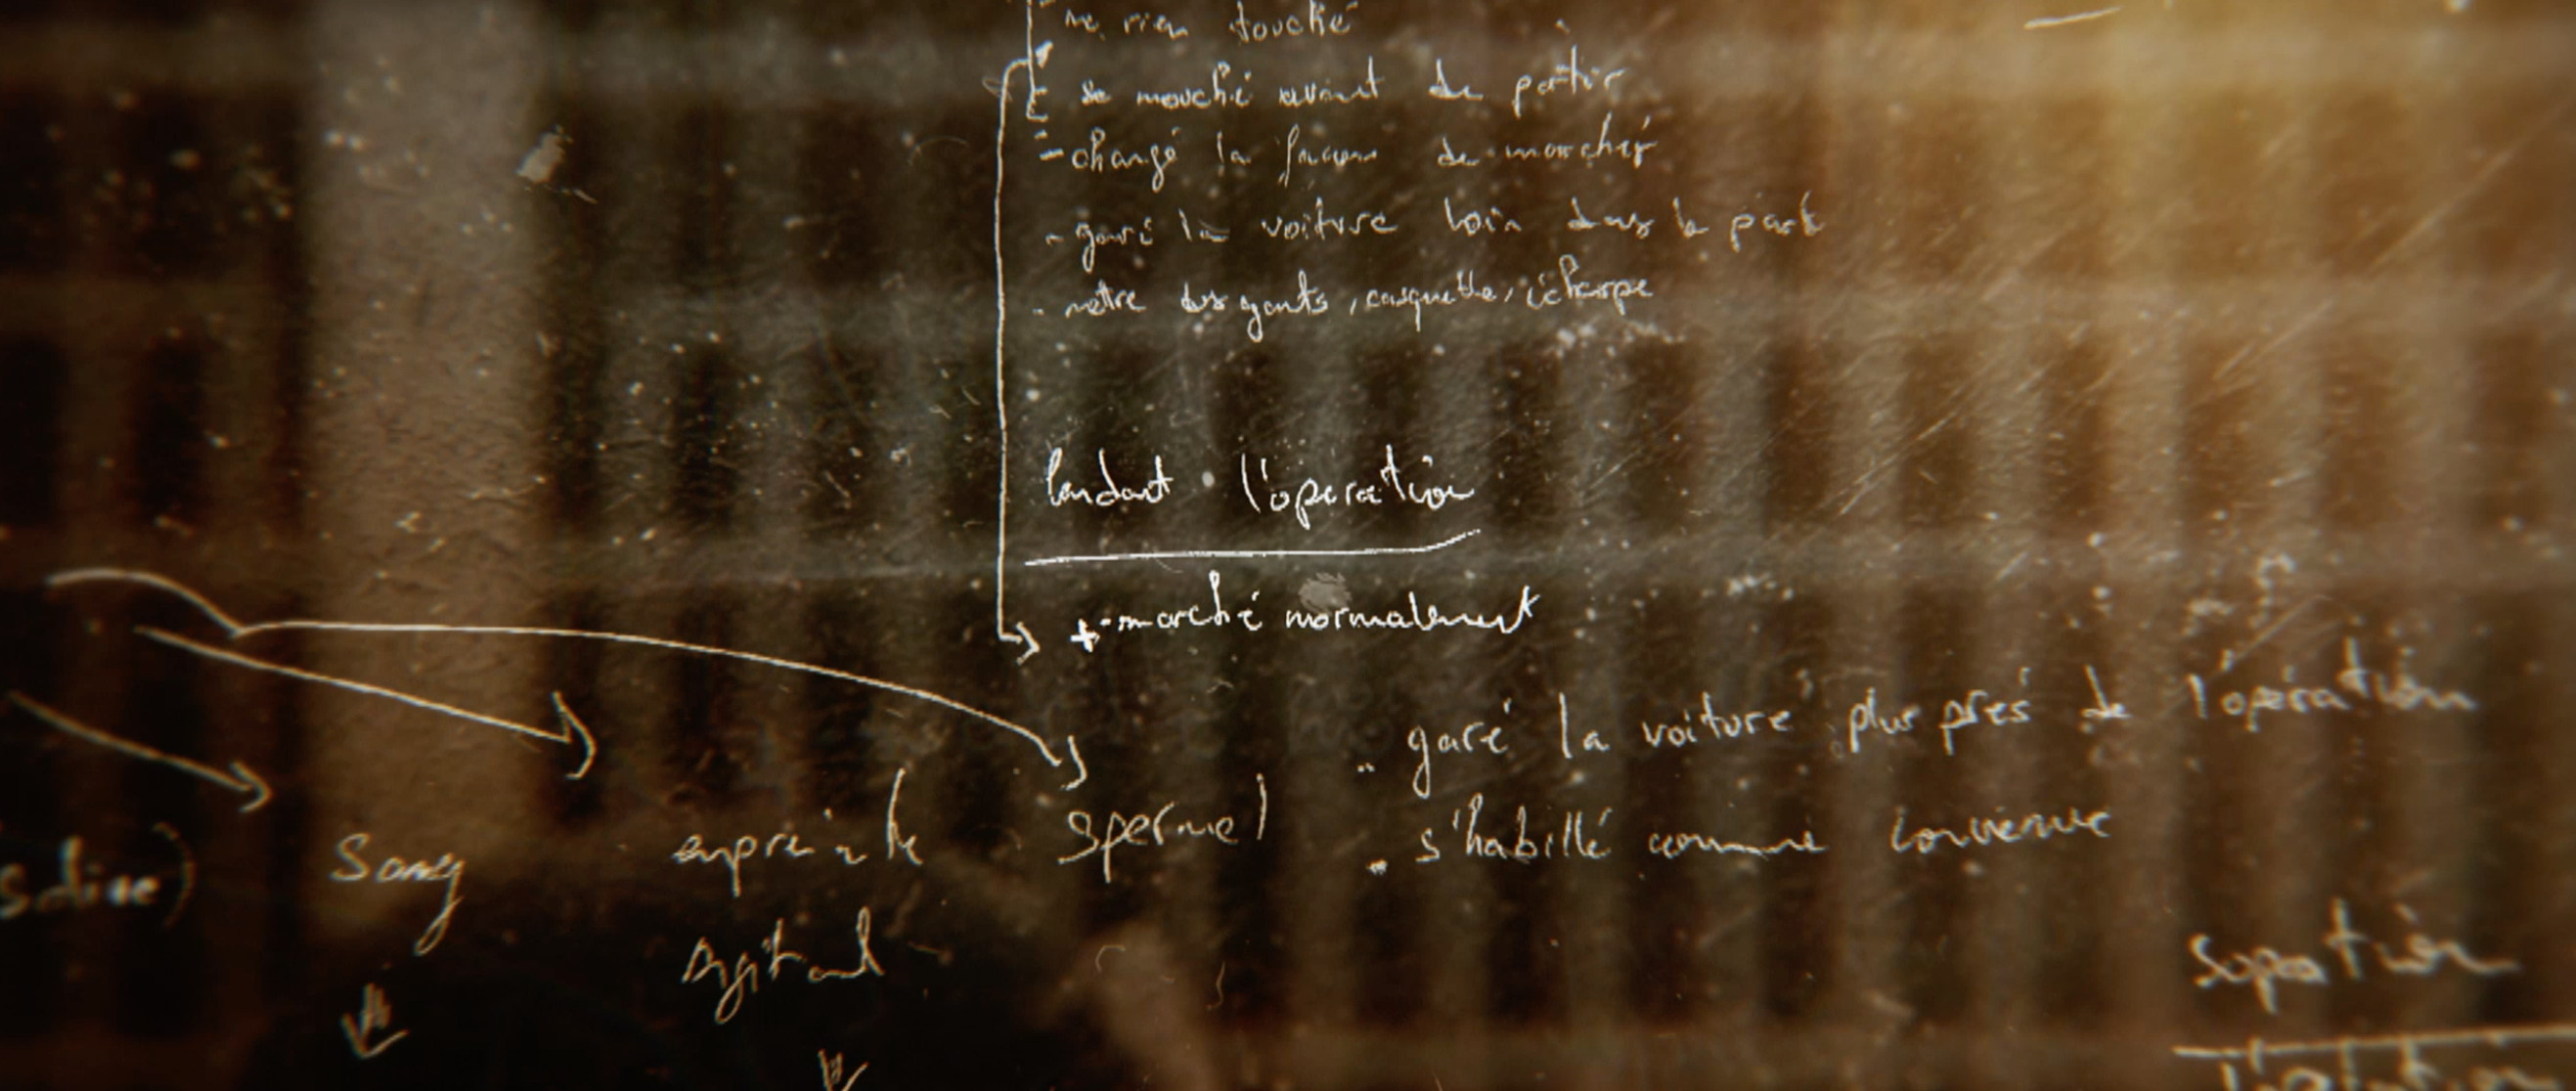 ne rien touché
se mouché avant de partir
-changé la façon de marcher
- garé la voiture loin dans le park
- mettre des gants, casquette, écharpe
Pendant l'operation
+-marché normalement
- garé la voiture plus près de l'opération
- s'habillé comme convenue
Salive)
Sang
empreinte
digital
sperme